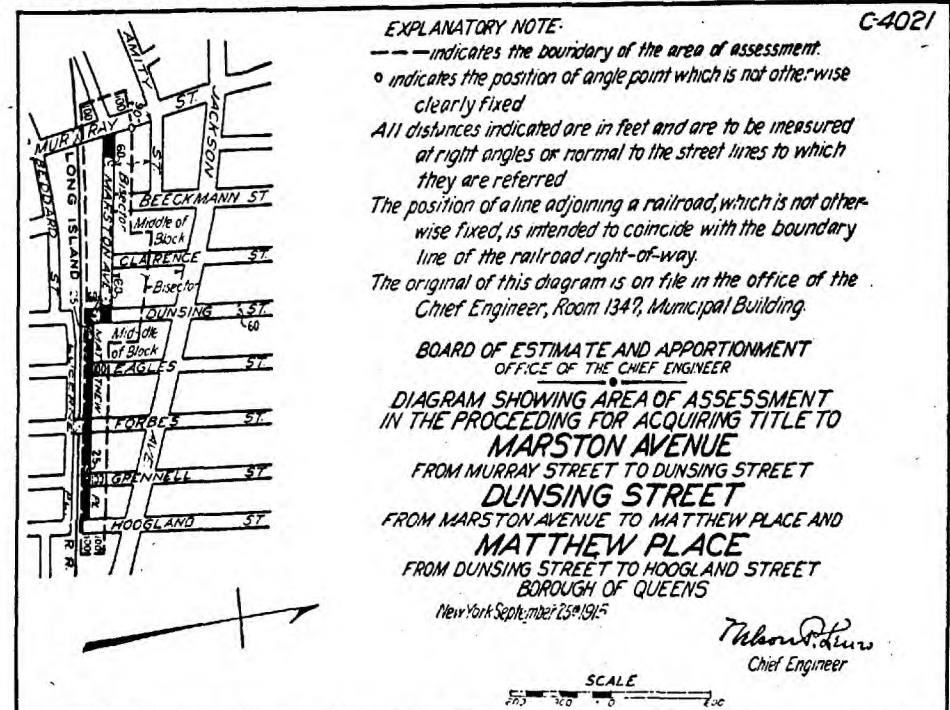 C-4021
EXPLANATORY NOTE:
indicates the boundary of the area of assessment.
indicates the position of angle point which is not otherwise
clearly fixed
All distances indicated are in feet and are to be measured
at right angles or normal to the street lines to which
they are referred
The position of a line adjoining a railroad, which is not other-
wise fixed, is intended to coincide with the boundary
line of the railroad right-of-way.
The original of this diagram is on file in the office of the
Chief Engineer, Room 1347, Municipal Building.
BOARD OF ESTIMATE AND APPORTIONMENT
OFFICE OF THE CHIEF ENGINEER
DIAGRAM SHOWING AREA OF ASSESSMENT
IN THE PROCEEDING FOR ACQUIRING TITLE TO
MARSTON AVENUE
FROM MURRAY STREET TO DUNSING STREET
DUNSING STREET
FROM MARSTON AVENUE TO MATTHEW PLACE AND
MATTHEW PLACE
FROM DUNSING STREET TO HOOGLAND STREET
BOROUGH OF QUEENS
New York September 25th 1915
Chief Engineer
SCALE
AMITY
ST.
JACKSON
AVE
MURRAY
ST.
100
100
90
LONG ISLAND
R.R.
MARSTON AVE
60
Bisector
BEECKMANN ST
Middle of
Block
CLARENCE ST.
60
Bisector
DUNSING ST.
60
Middle
of Block
EAGLES ST.
MATTHEW PL
FORBES ST.
25
GRENNELL ST
HOOGLAND ST
100
100